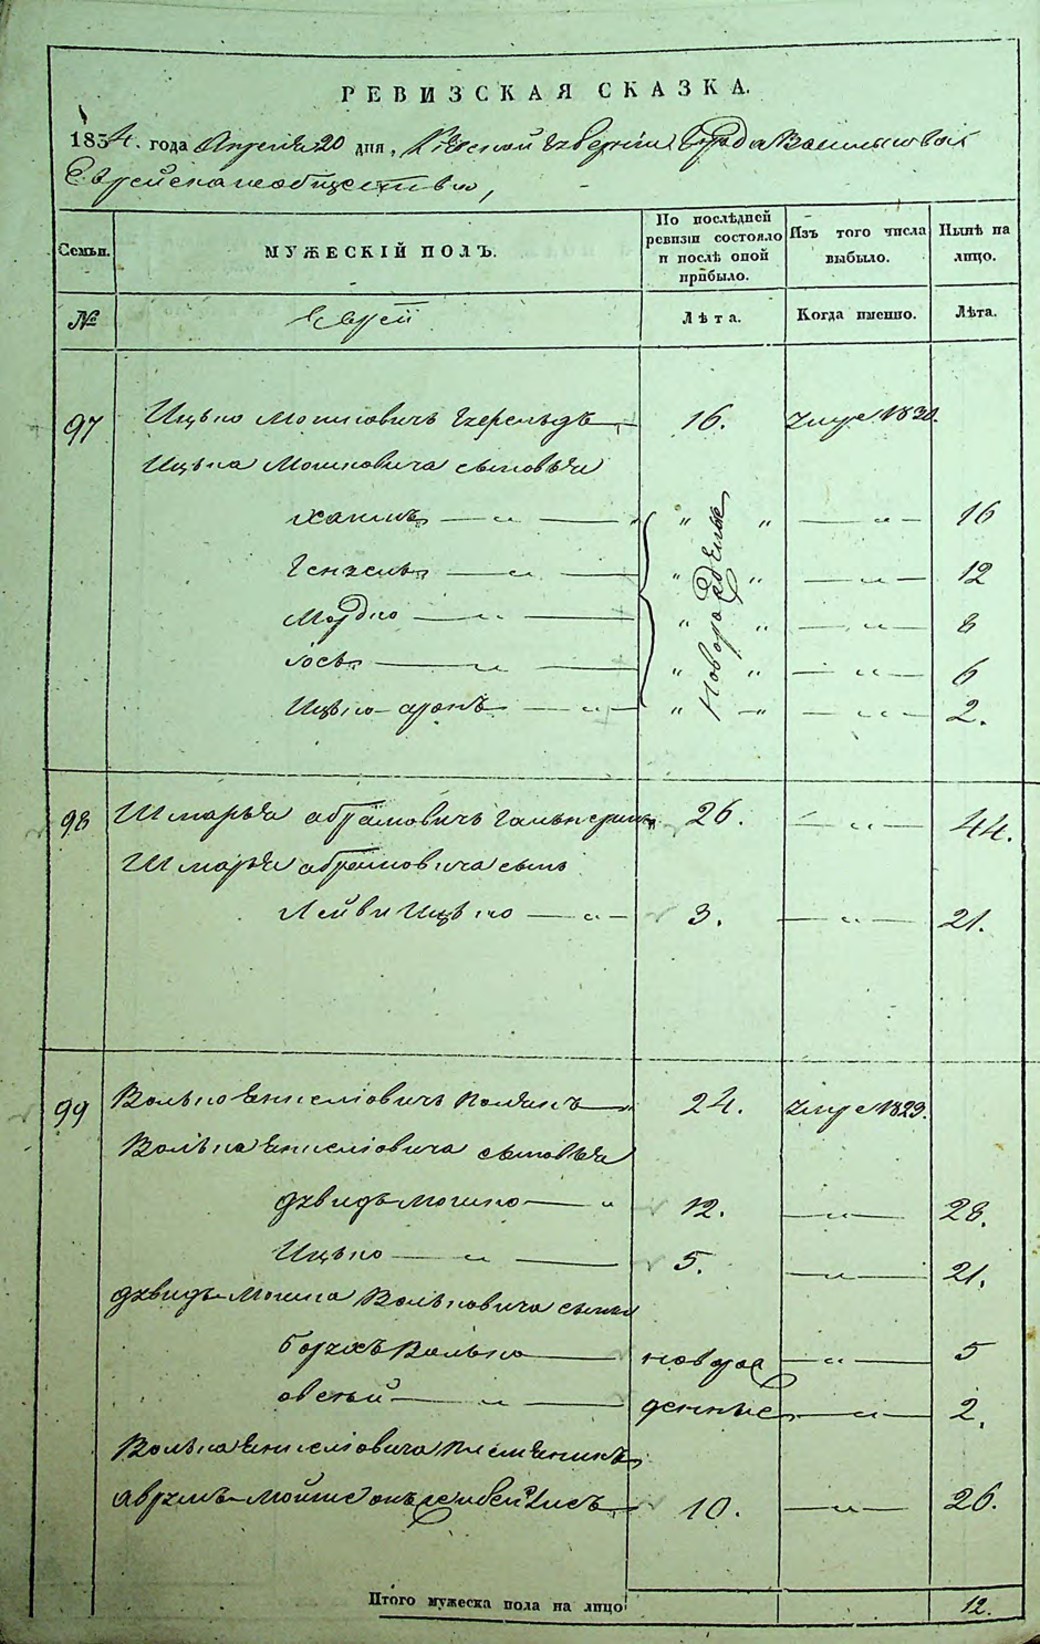 РЕВИЗСКАЯ СКАЗКА.
1834. года Апреля 20 дня, Киевской Губернии Города Василькова
Еврейскаго общества,
Семьи. МУЖЕСКІЙ ПОЛЪ. По послѣдней ревизіи состояло и послѣ оной прибыло. Изъ того числа выбыло. Нынѣ на лицо.
№ Еврей Лѣта. Когда именно. Лѣта.
97 Ицько Мошковичъ 16. умре 1830.
Ицька Мошковича сыновья
Хаимъ — „ — „ „ — „ — 16
Гензель — „ — „ „ — „ — 12
Мордко — „ — „ „ — „ — 8
Іось — „ — „ „ — „ — 6
Ицько-аронъ — „ — „ „ — „ — 2.
Новорожденные
98 Шмарья абрамовичъ Гальперинъ 26. — „ — 44.
Шмарья абрамовича сынъ
Лейви Ицько — „ — 3. — „ — 21.
99 Волько 24. умре 1829.
Волька сыновья
Давидъ-Мошко — „ 12. — „ — 28.
Ицько — „ — 5. — „ — 21.
Давидъ-Мошка Вольковича сыны
Борухъ Волько — новорож — „ — 5
овсей — „ — денные — „ — 2.
Волька племяникъ
Аврумъ-Мойше 10. — „ — 26.
Итого мужеска пола на лицо 12.